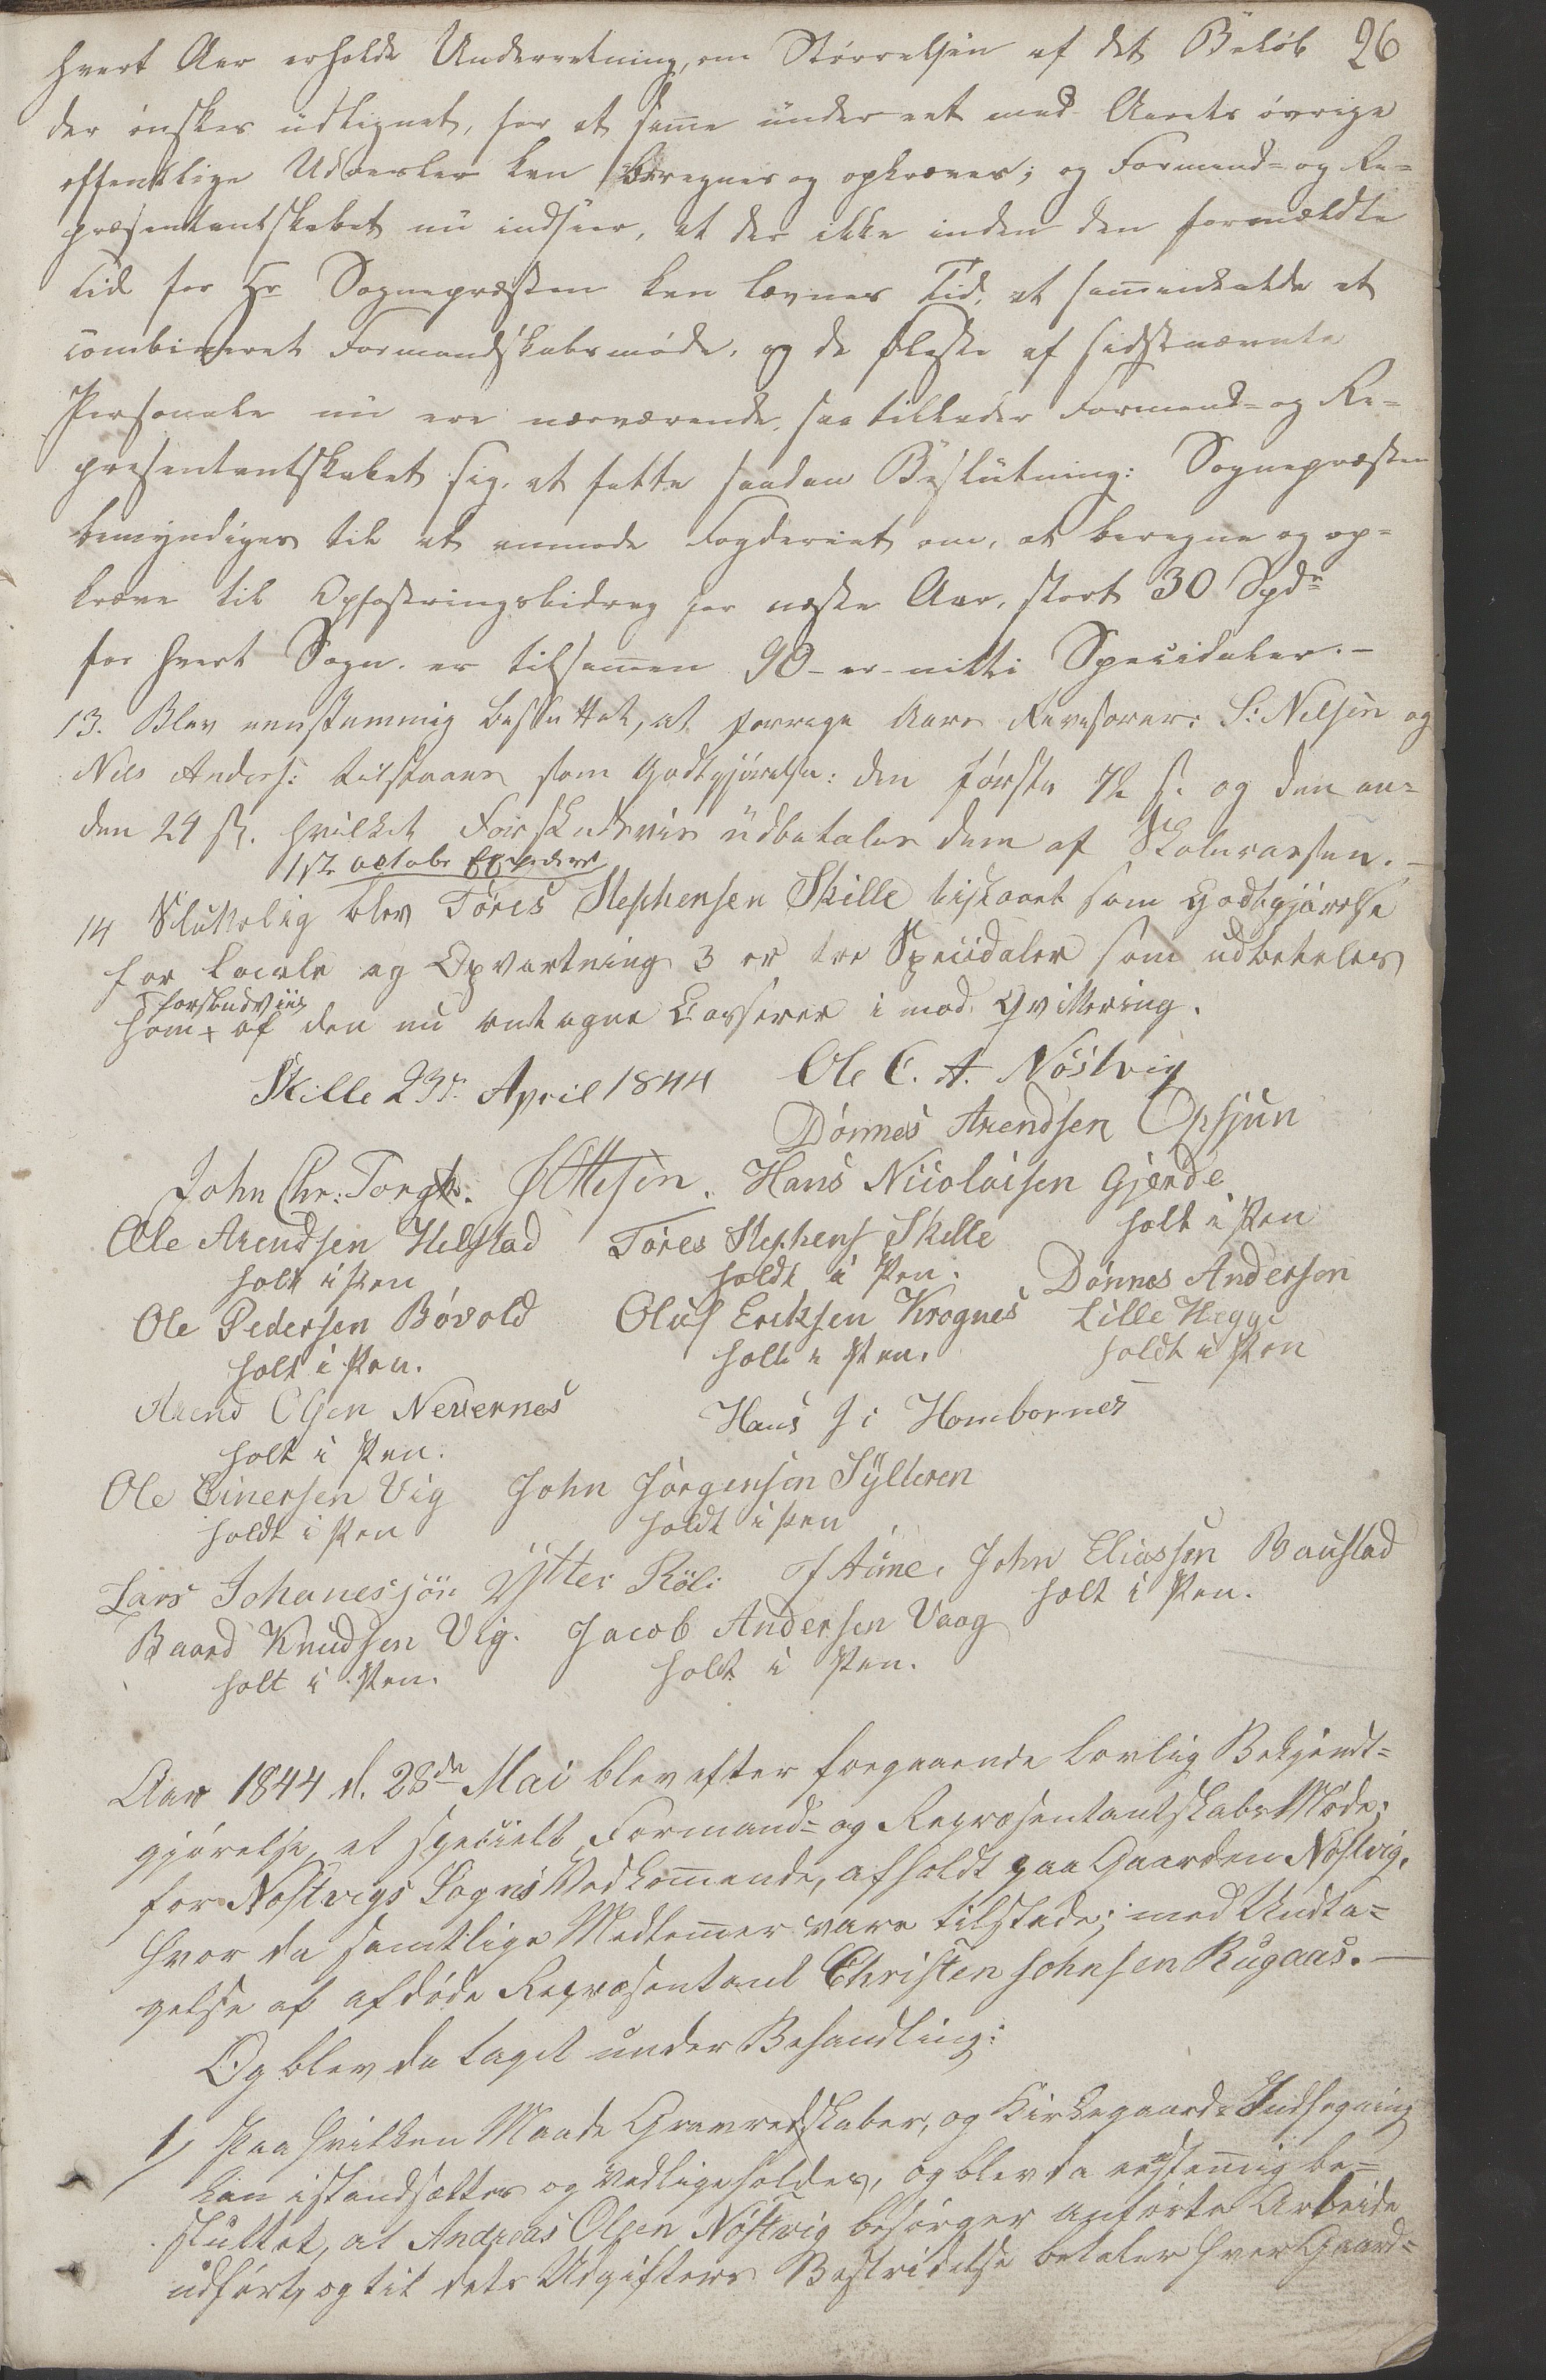 26
hvert Aar erholde Underretning, om Størrelsen af det Beløb
der ønskes udlignet, for at same under eet med Aarets øvrige
offentlige Udredsler kan beregnes og opkræves; og Formand- og Re-
præsentantskabet nu indseer, at der ikke inden den formældte
Tid for Hr Sognepræsten kan levnes Tid, at samenkalde et
combineret Formandskabsmøde, og de fleste af sidstnævnte
Personale nu ere nærværende, saa tillader Formand- og Re-
presentantskabet sig, at fatte saadan Beslutning: Sognepræsten
bemyndiges til at anmode Fogderiet om, at beregne og op-
kræve til Opfostringsbidrag for næste Aar, stort 30 Spdr
for hvert Sogn. er tilsamen 90 - er - nitti Specidaler. -
13. Blev eenstemmig besluttet, at forrige Aars Revisorer: S: Nilsen og
Nils Anders: tilstaaes som Godtgjørelse: den første 72 s. og den an-
den 24 sk. hvilket Forskudsviis udbetales dem af Skolecassen. -
1ste octobr
14 Sluttelig blev Töres Stephensen Skille tilstaaet som Godtgjørelse
for Locale og Opvartning 3 er tre Specidaler som udbetales
forskudviis
ham + af den nu antagne Casserer i mod Qvittering.
Skille 23de April 1844 Ole C. A. Nöstvig
Dönnes Arendsen Opsjøn
John Chr: Torgh. JOttesen. Hans Nicolaisen Gjerde
holt i Pen
Ole Arendsen Helstad Töres Stephens Skille
holt i Pen holdt i Pen. Dönnes Andersen
Ole Pedersen Bövold Oluf Eriksen Krognes Lille Hegge
holt i Pen. holt i Pen. holdt i Pen
Arend Olsen Nevernes Hans J: Hombornes
holt i Pen.
Ole Einersen Vig John Jörgensen Sylteren
holdt i Pen holdt i Pen
Lars Johanesjön Ytter Röli J Aune. John Eliassen Baustad
holt i Pen.
Baard Knudsen Vig. Jacob Andersen Vaag
holt i Pen. holdt i Pen.
Aar 1844 d. 28de Mai blev efter foregaaende lovlig Bekjendt-
gjørelse, et specielt Formand- og Repræsentantskabs Møde;
for Nöstvigs Sogns Vedkomende, afholdt paa Gaarden Nöstvig,
hvor da samtlige Medlemer vare tilstede; med Undta-
gelse af afdøde Repræsentant Christen Johnsen Rugaas. -
Og blev da taget under Behandling:
1, Paa hvilken Maade Gravredskaber, og Kirkegaards-Indhegning
kan istandsættes og vedligeholdes, og blev da eenstemig be-
sluttet, at Andreas Olsen Nöstvig besørger anførte Arbeide
udført, og til dets Udgifters Bestridelse betaler hver Gaard-